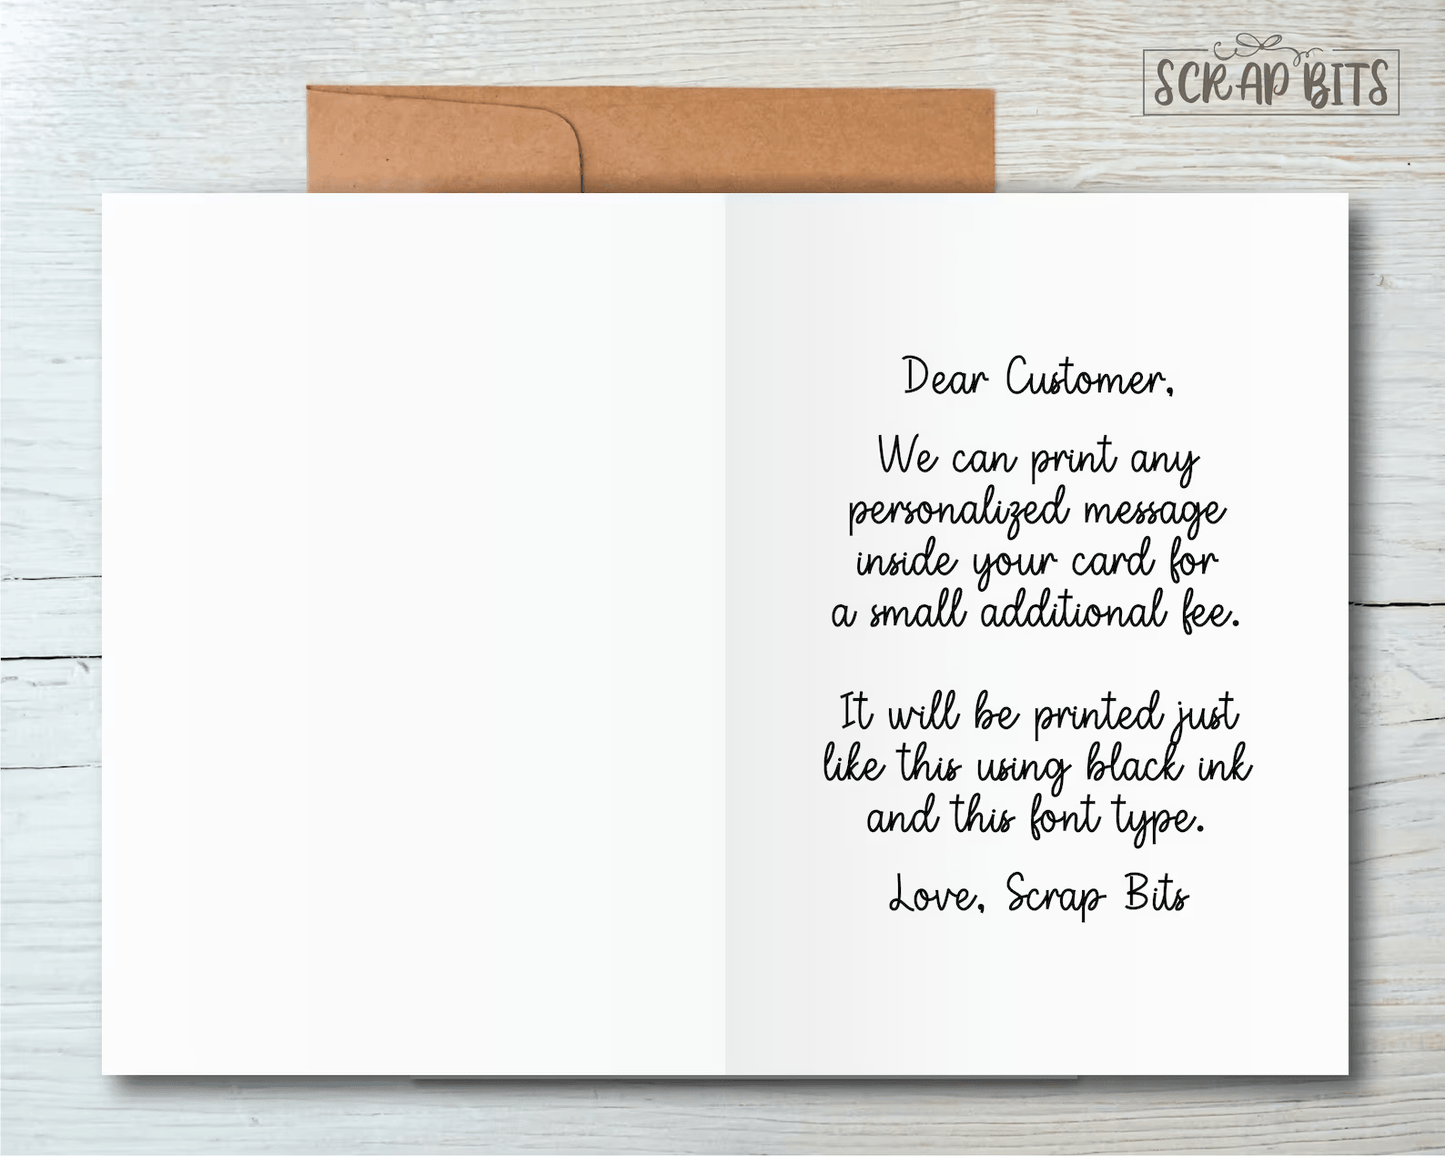 SCRAP BITS
Dear Customer,
We can print any
personalized message
inside your card for
a small additional fee.
It will be printed just
like this using black ink
and this font type.
Love, Scrap Bits